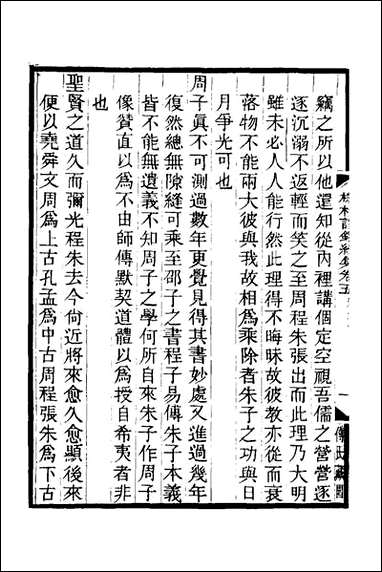 竊之所以他還知從內裡講個定空視吾儒之營營逐
逐沉溺不返輕而笑之至周程朱張出而此理乃大明
雖未必人人能行然此理得不晦昧故彼教亦從而衰
落物不能兩大彼與我故相爲乘除者朱子之功與日
月爭光可也
周子真不可測過數年更覺見得其書妙處又進過幾年
復然總無隙縫可乘至邵子之書程子易傳朱子本義
皆不能無遺義不知周子之學何所自來朱子作周子
像贊直以爲不由師傳默契道體以爲授自希夷者非
也
聖賢之道久而彌光程朱去今尙近將來愈久愈顯後來
便以堯舜文周爲上古孔孟爲中古周程張朱爲下古
榕村語錄續集卷五
一
傅氏藏園